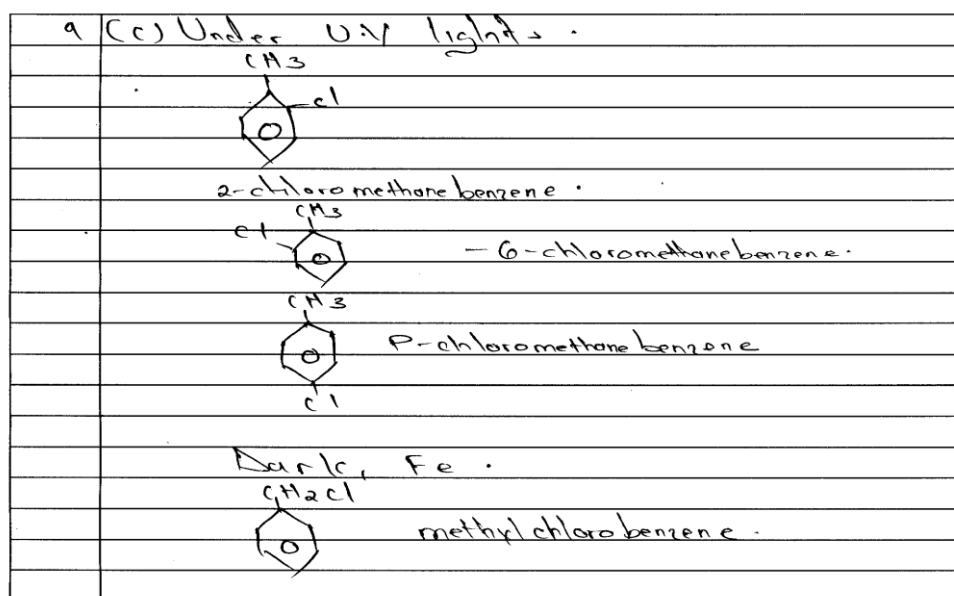 9 (c) Under U.V light.
CH3
cl
2-chloromethanebenzene.
CH3
cl
- 6-chloromethanebenzene.
CH3
P-chloromethanebenzene
cl
Dark, Fe.
CH2cl
methylchlorobenzene.